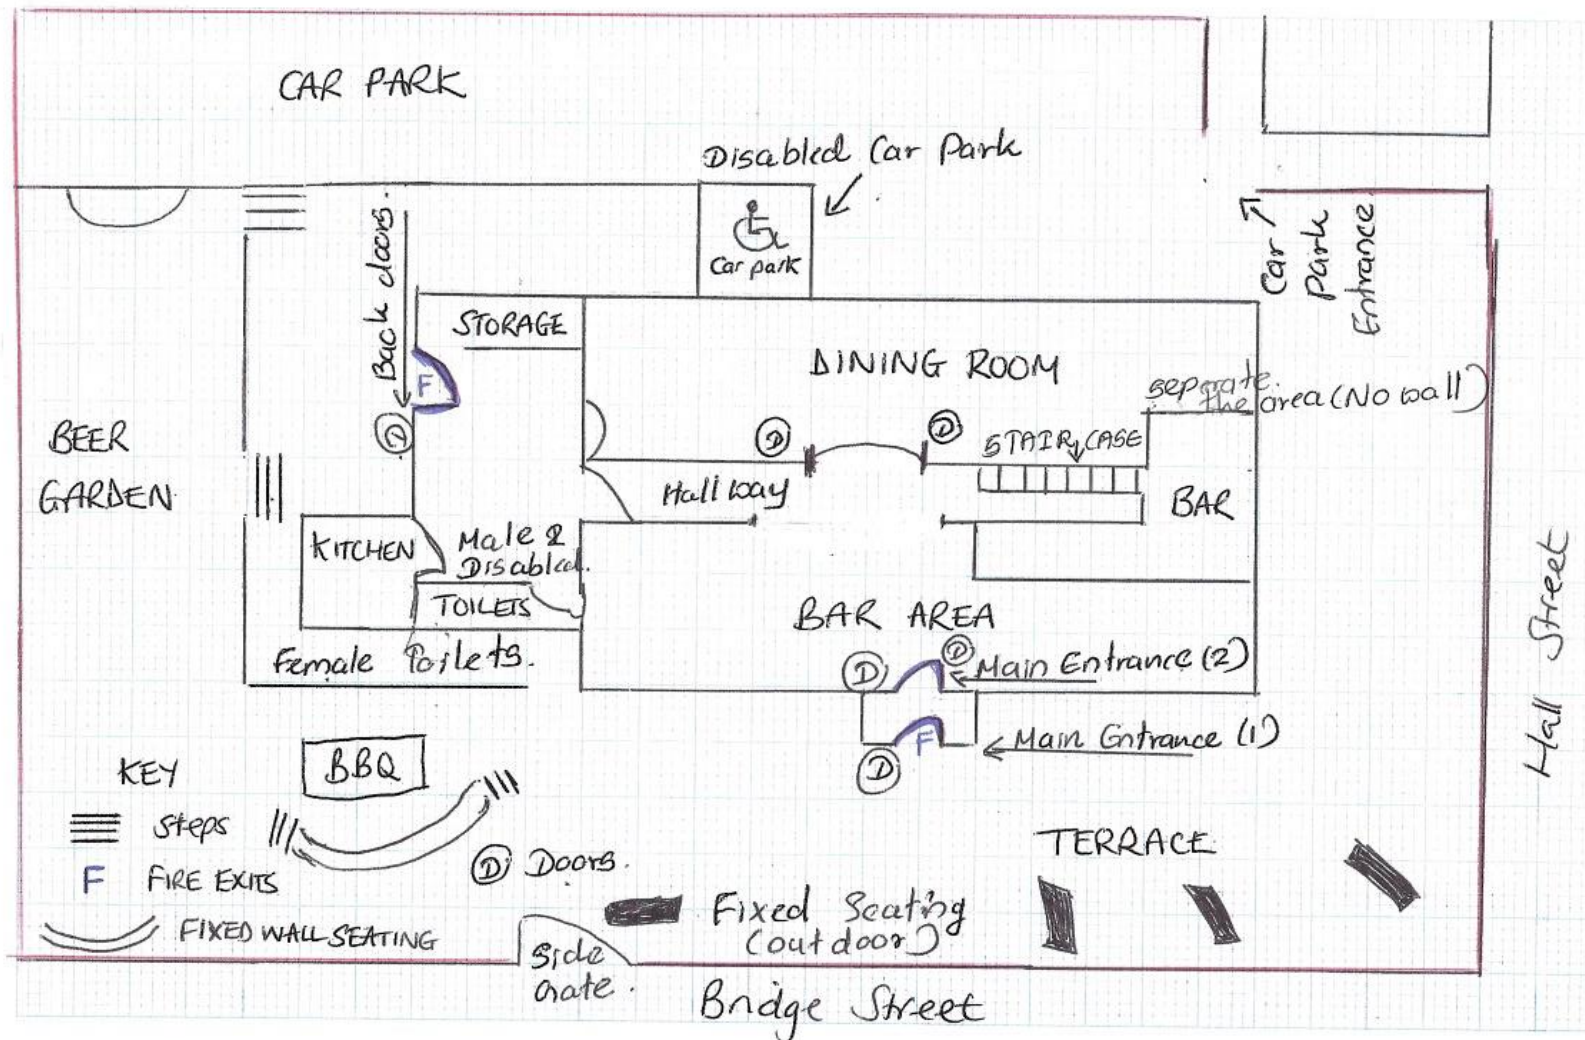 CAR PARK
Disabled Car Park
Car park
Car
Park
Entrance
Back doors.
STORAGE
F
DINING ROOM
seperate.
the area (No wall)
D
D
D
STAIR CASE
BEER
GARDEN
Hallway
BAR
KITCHEN
Male &
Disabled.
TOILETS
BAR AREA
Female Toilets.
D
D
Main Entrance (2)
F
Main Entrance (1)
D
Hall Street
BBQ
KEY
Steps
F FIRE EXITS
FIXED WALL SEATING
D Doors.
TERRACE
Fixed Seating
(outdoor)
Side
Gate.
Bridge Street